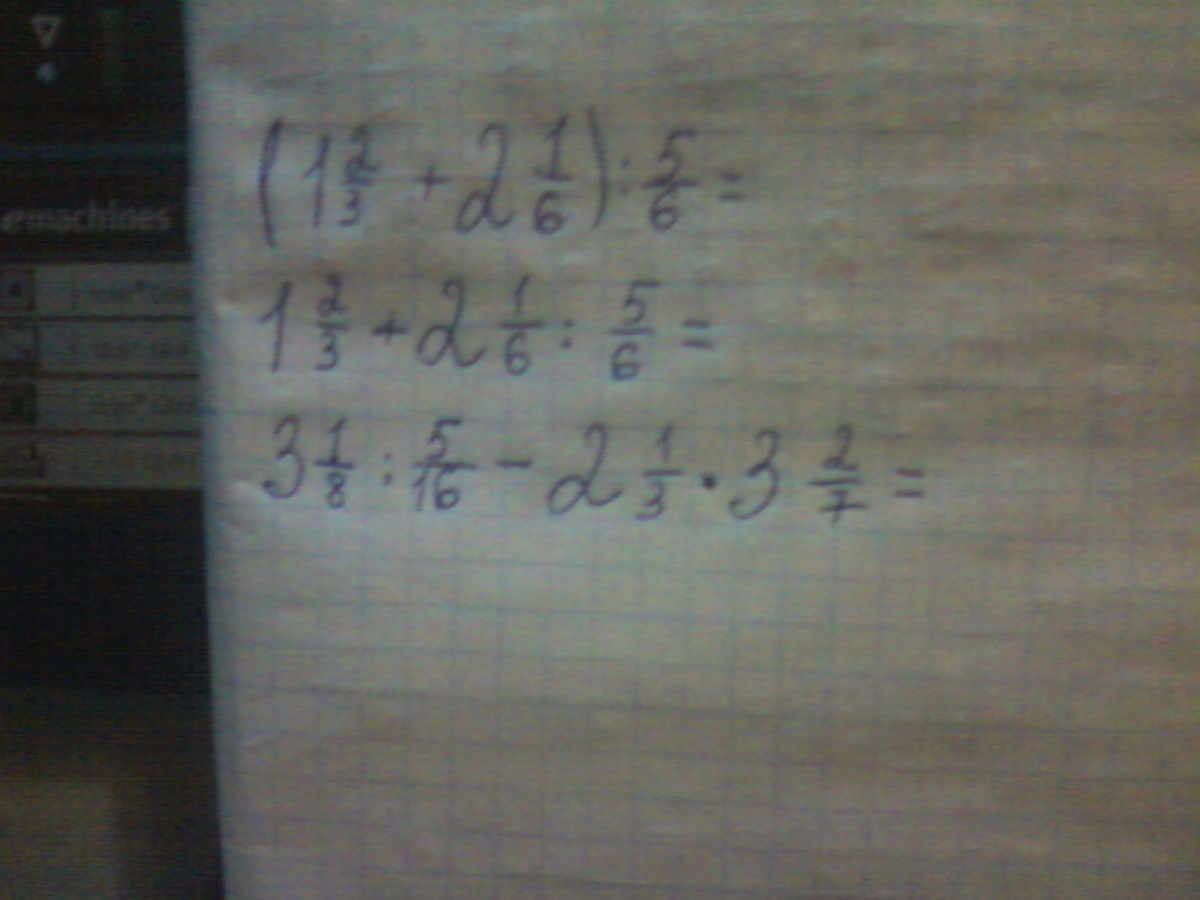 emachines
(1 2/3 + 2 1/6) : 5/6 =
1 2/3 + 2 1/6 : 5/6 =
3 1/8 : 5/16 - 2 1/3 · 3 2/7 =